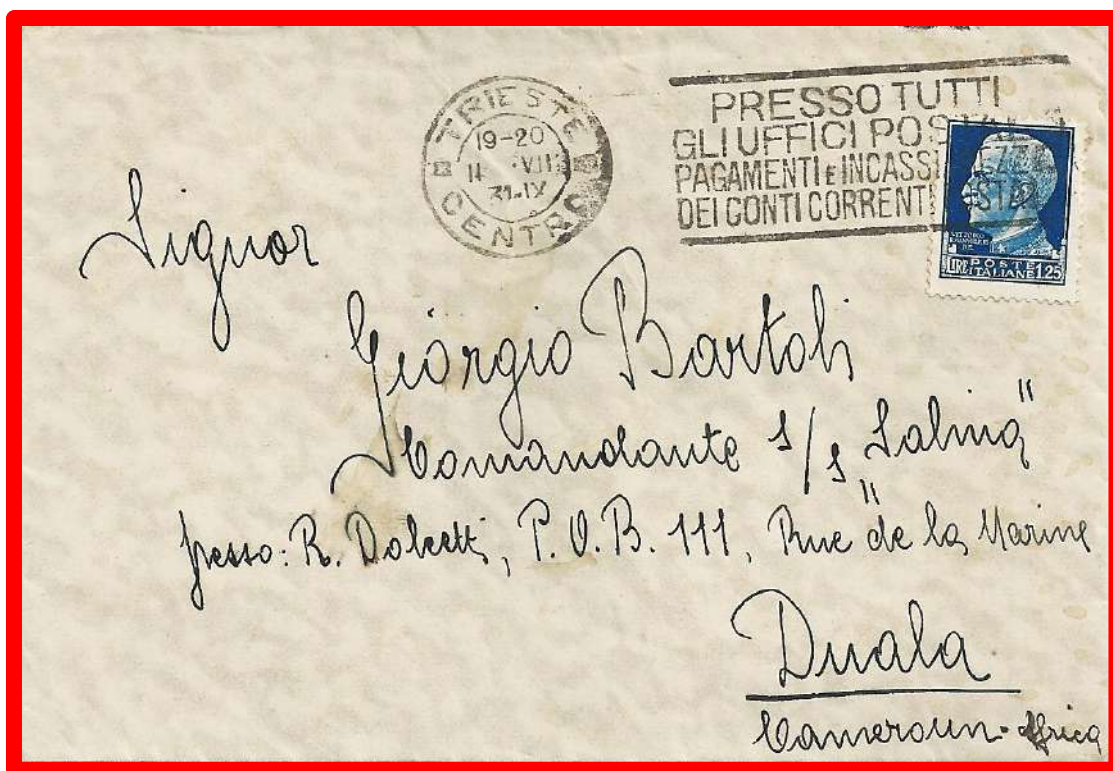 TRIESTE
19-20
31-IX
CENTRO
PRESSO TUTTI
GLI UFFICI
PAGAMENTI E INCASSI
DEI CONTI CORRENTI
POSTE
LIRE ITALIANE 1.25
Signor
Giorgio Bartoli
Comandante s/s „Salina"
presso: R. Dolcetti, P.O.B. 111, Rue de la Marine
Duala
Cameroun-Africa